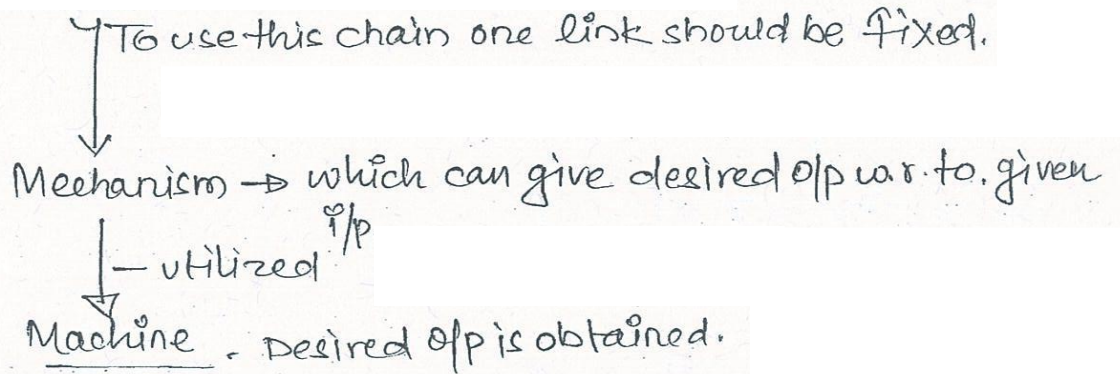 To use this chain one link should be fixed.
Mechanism → which can give desired o/p w.r.to. given
i/p
- utilized
Machine. Desired o/p is obtained.